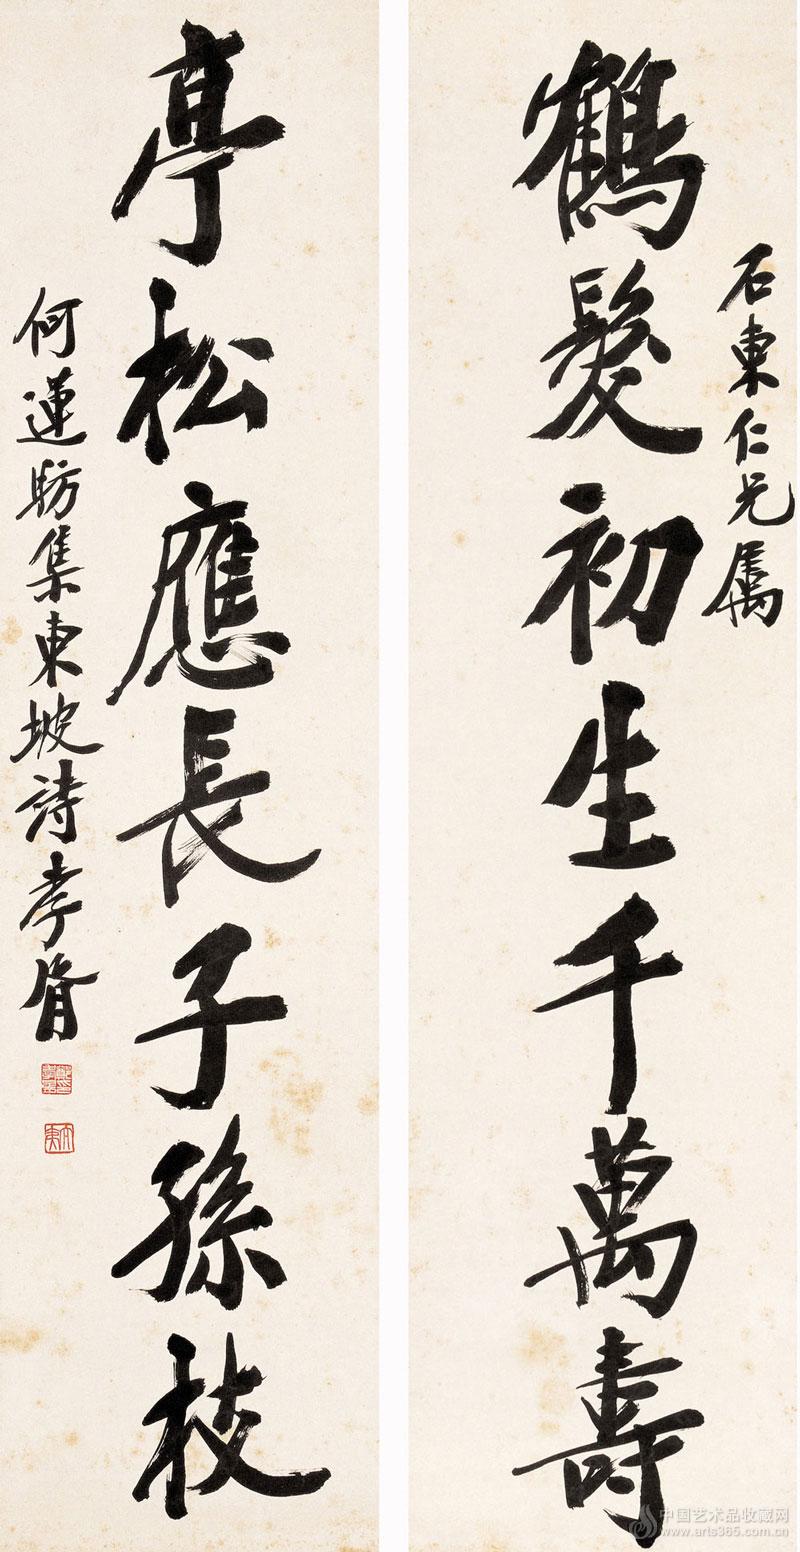 石東仁兄屬
鶴髮初生千萬壽
亭松應長子孫枝
何蓮舫集東坡詩孝胥
中国艺术品收藏网
www.arts365.com.cn